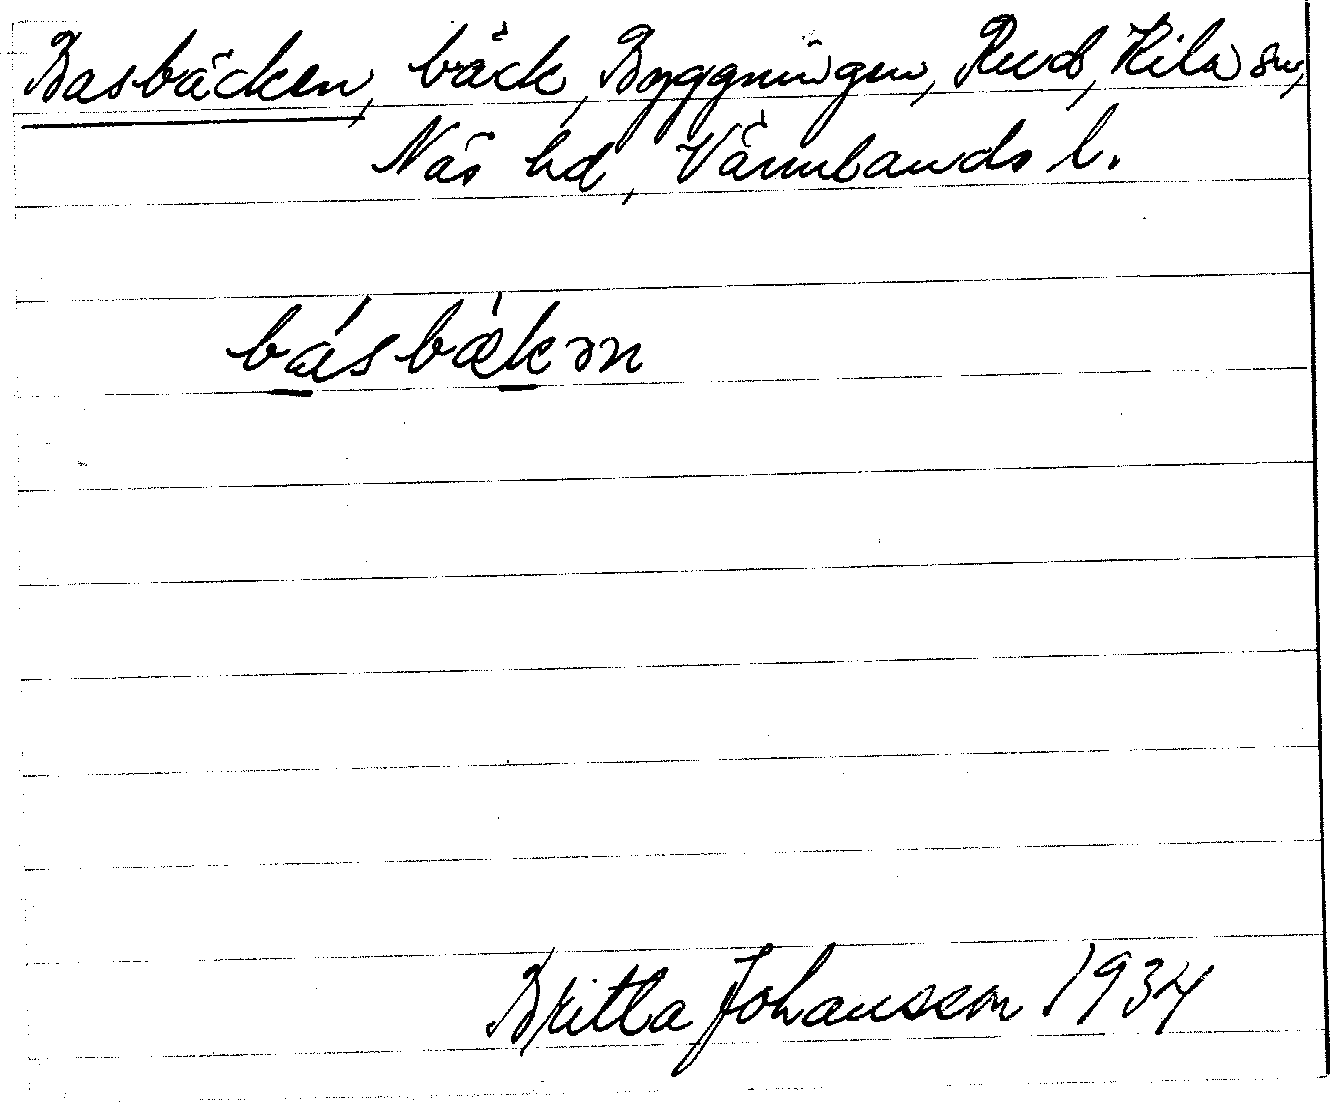 Basbäcken, bäck, Byggningen, Rud, Kila sn,
Näs hd, Värmlands l.
básbǽkən
Britta Johansson 1934